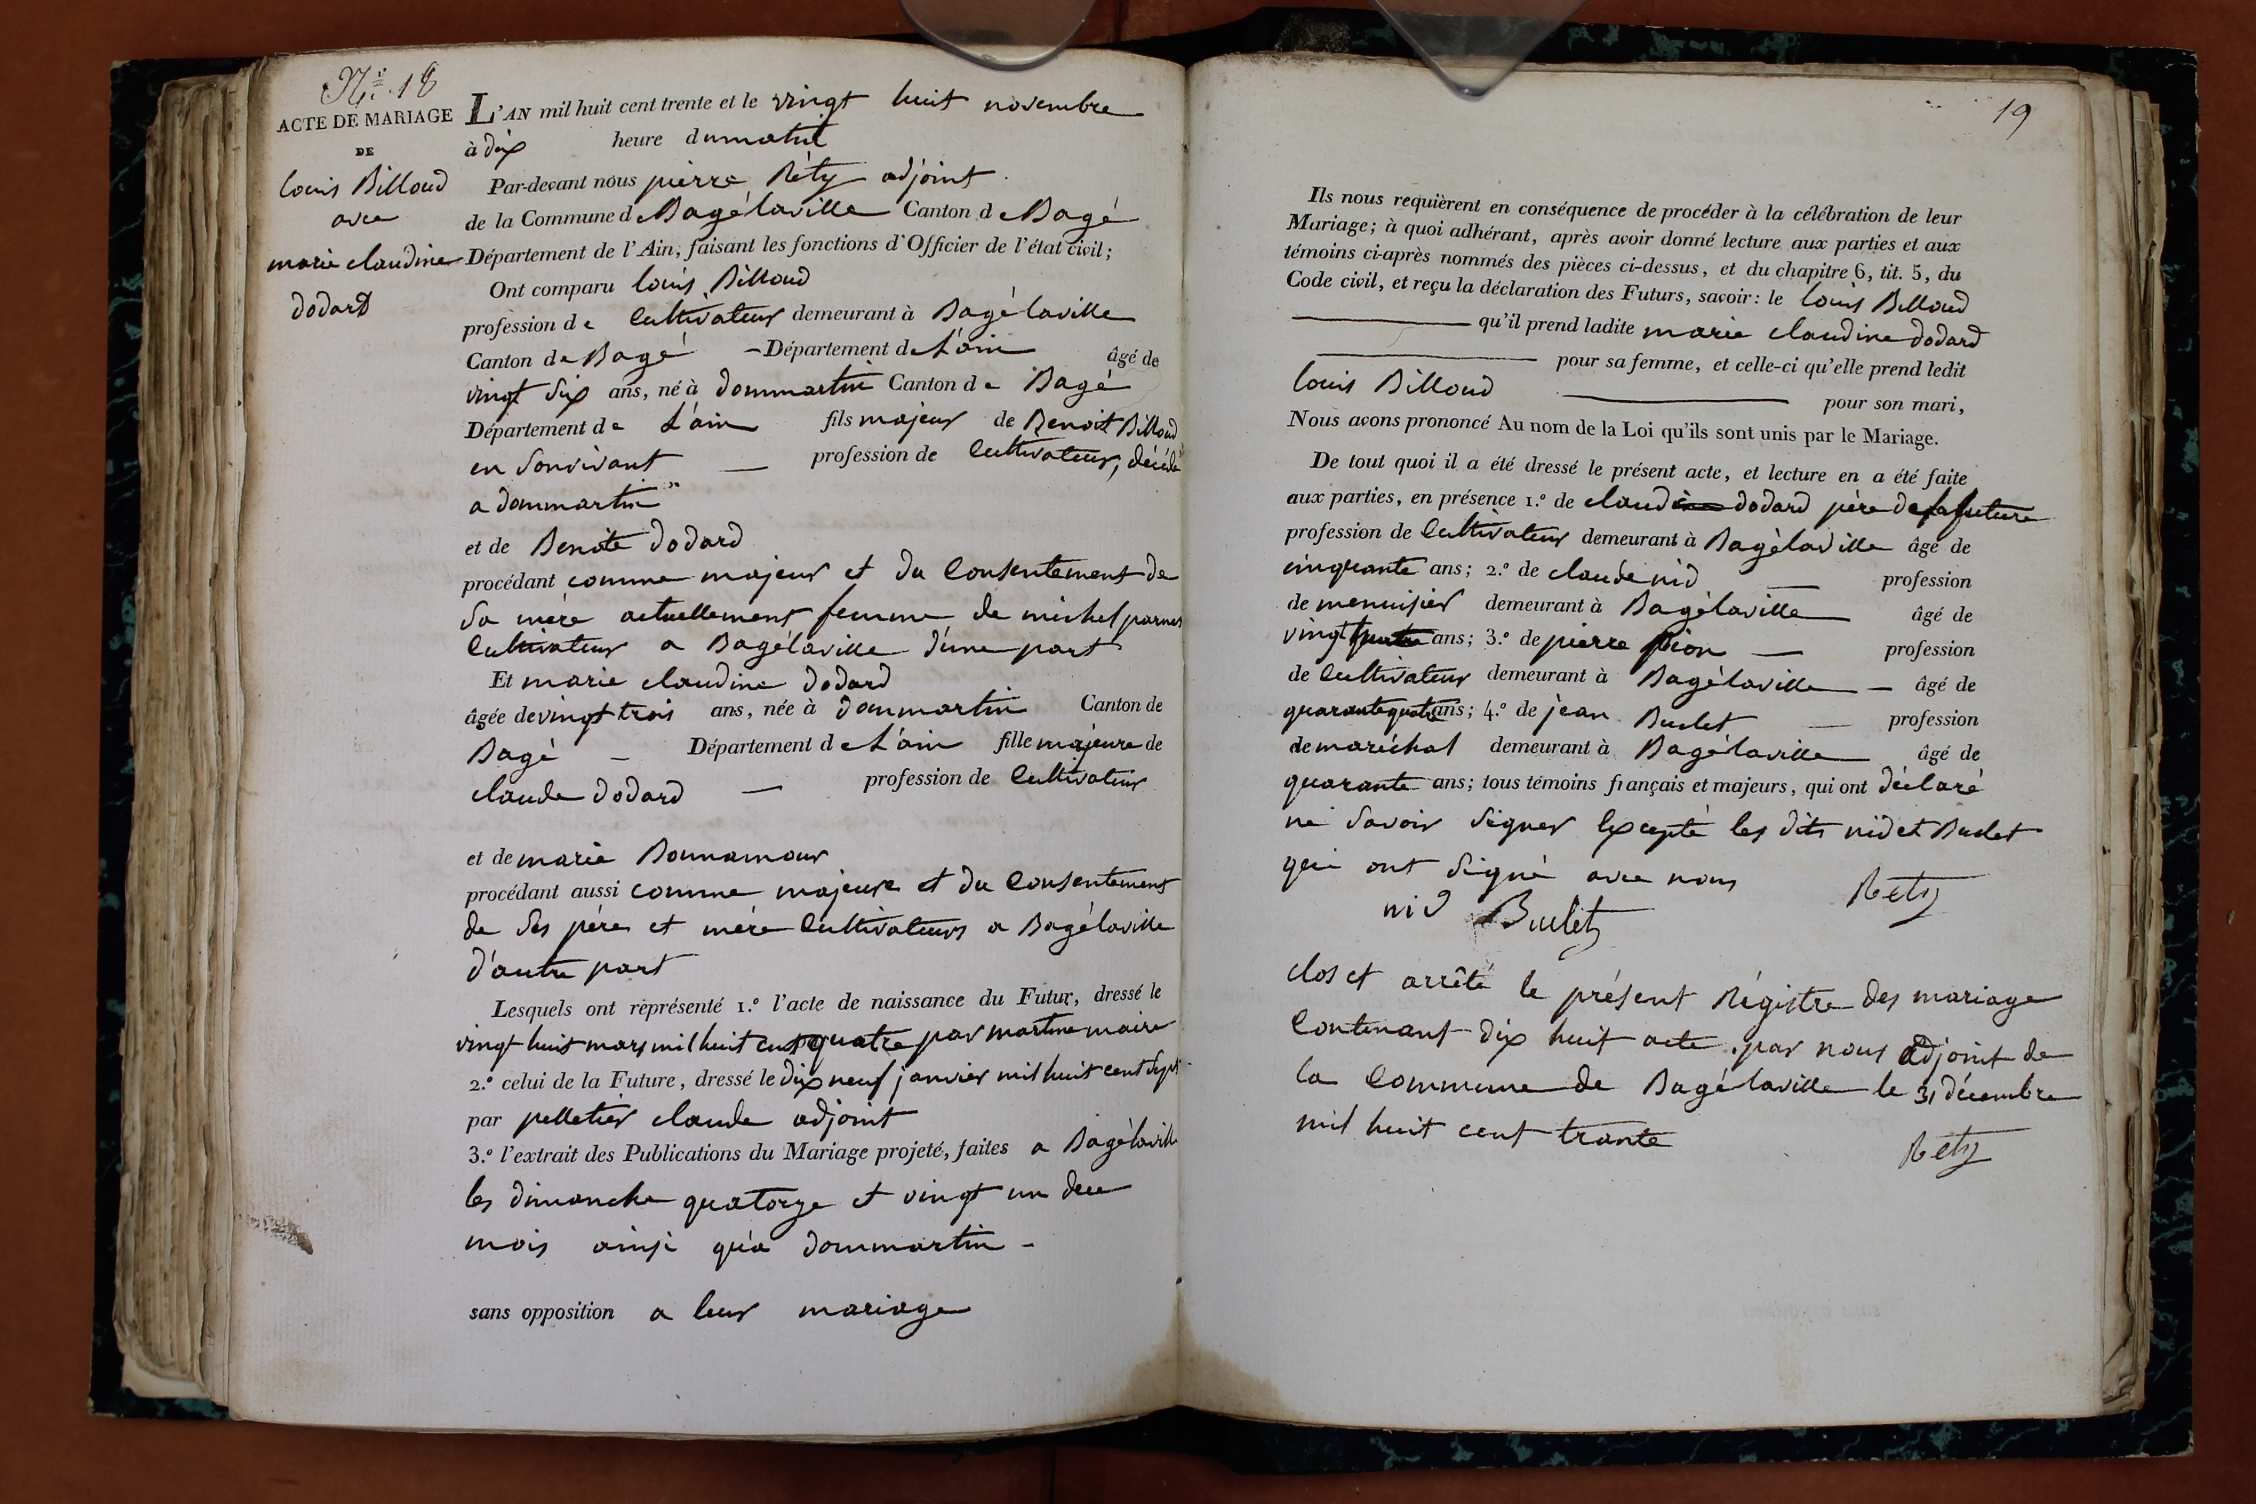 N.° 18
ACTE DE MARIAGE
DE
louis Billoud
avec
marie claudine
dodard
L'AN mil huit cent trente et le vingt huit novembre
à dix heure du matin
Par-devant nous pierre Réty adjoint
de la Commune de Bagélaville Canton de Bagé
Département de l'Ain, faisant les fonctions d'Officier de l'état civil;
Ont comparu louis Billoud
profession de Cultivateur demeurant à Bagélaville
Canton de Bagé – Département de L'ain âgé de
vingt six ans, né à dommartin Canton de Bagé
Département de L'ain fils majeur de Benoit Billoud
en sonvivant — profession de Cultivateur, décédé
a dommartin
et de Benoite dodard
procédant comme majeur et du Consentement de
sa mère actuellement femme de michel
Cultivateur a Bagélaville d'une part
Et marie claudine dodard
âgée de vingt trois ans, née à dommartin Canton de
Bagé – Département de L'ain fille majeure de
claude dodard — profession de Cultivateur
et de marie Bonnamour
procédant aussi comme majeure et du Consentement
de ses père et mère Cultivateurs a Bagélaville
d'autre part
Lesquels ont représenté 1.° l'acte de naissance du Futur, dressé le
vingt huit mars mil huit cent quatre par martine maire
2.° celui de la Future, dressé le dix neuf janvier mil huit cent sept
par pelletier claude adjoint
3.° l'extrait des Publications du Mariage projeté, faites a Bagélaville
les dimanche quatorze et vingt un du
mois ainsi qu'a dommartin –
sans opposition a leur mariage
19
Ils nous requièrent en conséquence de procéder à la célébration de leur
Mariage; à quoi adhérant, après avoir donné lecture aux parties et aux
témoins ci-après nommés des pièces ci-dessus, et du chapitre 6, tit. 5, du
Code civil, et reçu la déclaration des Futurs, savoir: le louis Billoud
qu'il prend ladite marie claudine dodard
pour sa femme, et celle-ci qu'elle prend ledit
louis Billoud pour son mari,
Nous avons prononcé Au nom de la Loi qu'ils sont unis par le Mariage.
De tout quoi il a été dressé le présent acte, et lecture en a été faite
aux parties, en présence 1.° de claude dodard père de la future
profession de Cultivateur demeurant à Bagélaville âgé de
cinquante ans; 2.° de claude nid — profession
de menuisier demeurant à Bagélaville âgé de
vingt quatre ans; 3.° de pierre pion — profession
de Cultivateur demeurant à Bagélaville — âgé de
quarante quatre ans; 4.° de jean Burlet — profession
de maréchal demeurant à Bagélaville âgé de
quarante ans; tous témoins français et majeurs, qui ont déclaré
ne savoir signer Excepté les dits nid et Burlet
qui ont signé avec nous
Rety
nid Burlet
clos et arrêté le présent Régistre des mariage
Contenant dix huit acte, par nous adjoint de
la Commune de Bagélaville le 31 décembre
mil huit cent trante
Rety